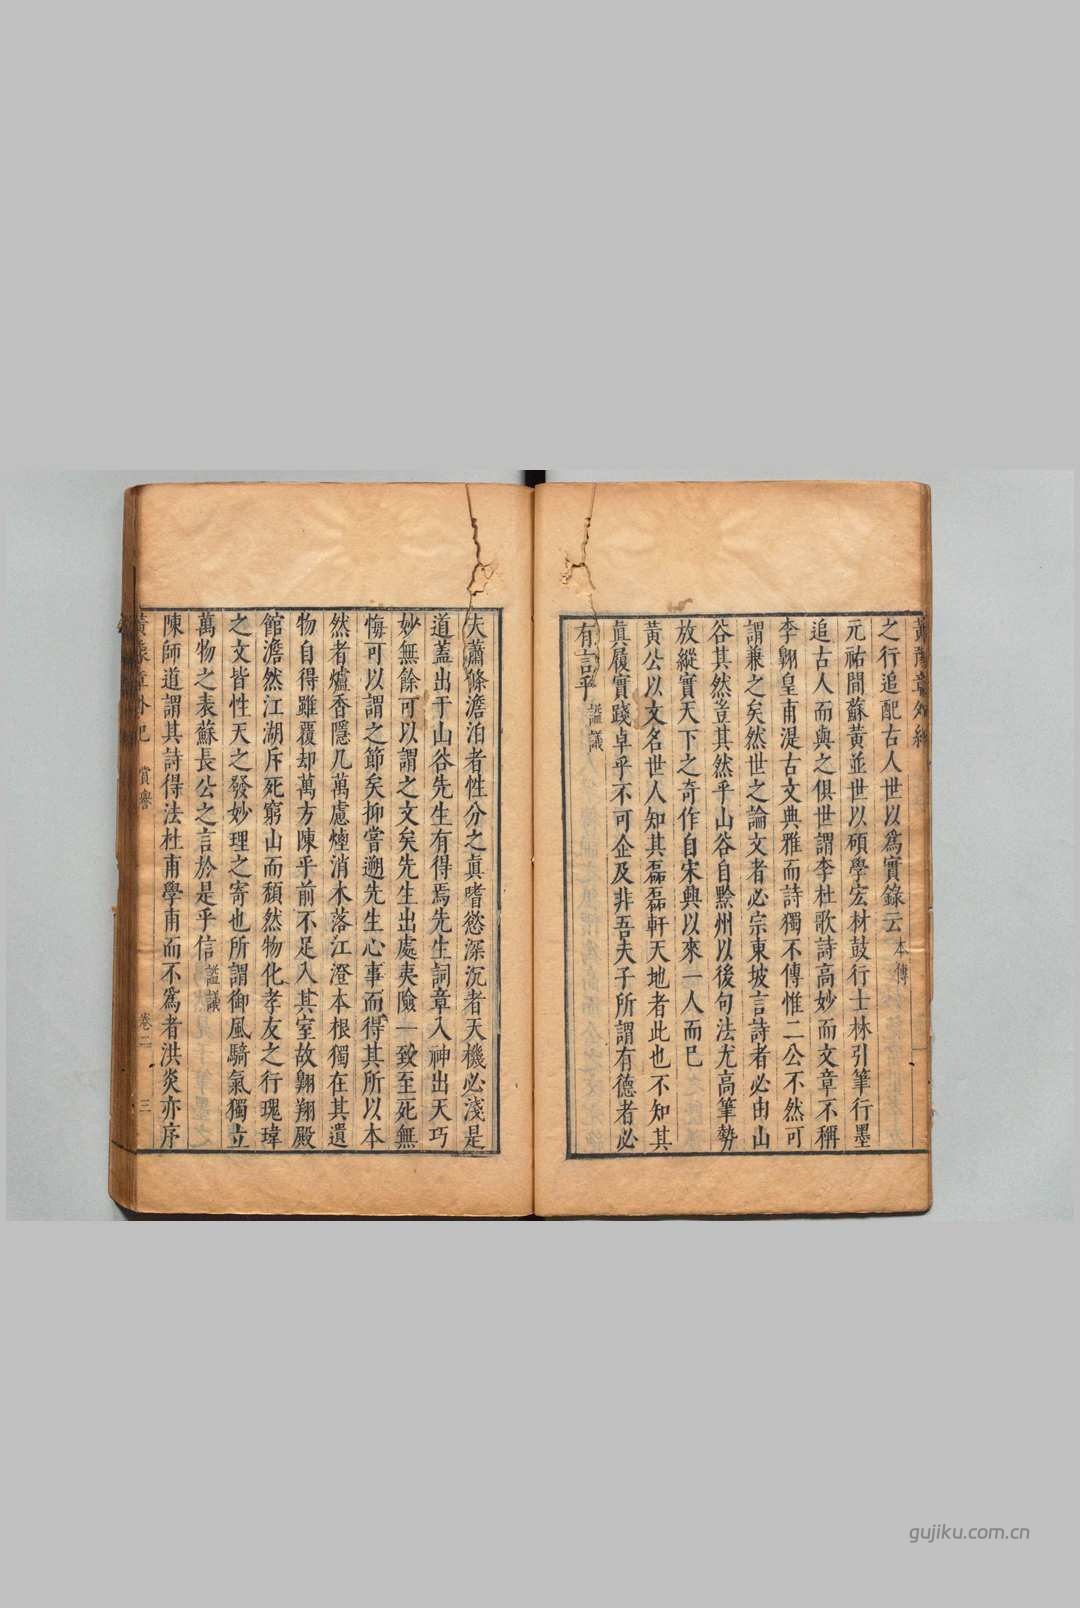 之行追配古人世以爲實錄云本傳
元祐間蘇黃並世以碩學宏材鼓行士林引筆行墨
追古人而與之俱世謂李杜歌詩高妙而文章不稱
李翺皇甫湜古文典雅而詩獨不傳惟二公不然可
謂兼之矣然世之論文者必宗東坡言詩者必由山
谷其然豈其然乎山谷自黔州以後句法尤高筆勢
放縱實天下之奇作自宋興以來一人而已
黃公以文名世人知其磊磊軒天地者此也不知其
眞履實踐卓乎不可企及非吾夫子所謂有德者必
有言乎謚議
夫蕭條澹泊者性分之眞嗜慾深沉者天機必淺是
道蓋出于山谷先生有得焉先生詞章入神出天巧
妙無餘可以謂之文矣先生出處夷險一致至死無
悔可以謂之節矣抑嘗遡先生心事而得其所以本
然者爐香隱几萬慮煙消木落江澄本根獨在其遺
物自得雖覆却萬方陳乎前不足入其室故翺翔殿
館澹然江湖斥死窮山而頹然物化孝友之行瑰瑋
之文皆性天之發妙理之寄也所謂御風騎氣獨立
萬物之表蘇長公之言於是乎信謚議
陳師道謂其詩得法杜甫學甫而不爲者洪炎亦序
賞譽 卷二 三
gujiku.com.cn